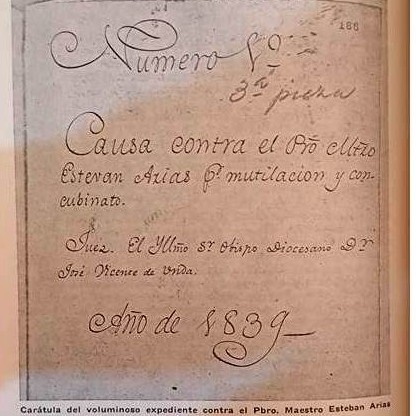 186
Numero 1º
3ª pieza
Causa contra el Pro. Mtro
Estevan Arias pr. mutilacion y con-
cubinato.
Juez. El Yllmo Sr Obispo Diocesano Dr
José Vicente de Unda.
Año de 1839
Carátula del voluminoso expediente contra el Pbro. Maestro Esteban Arias